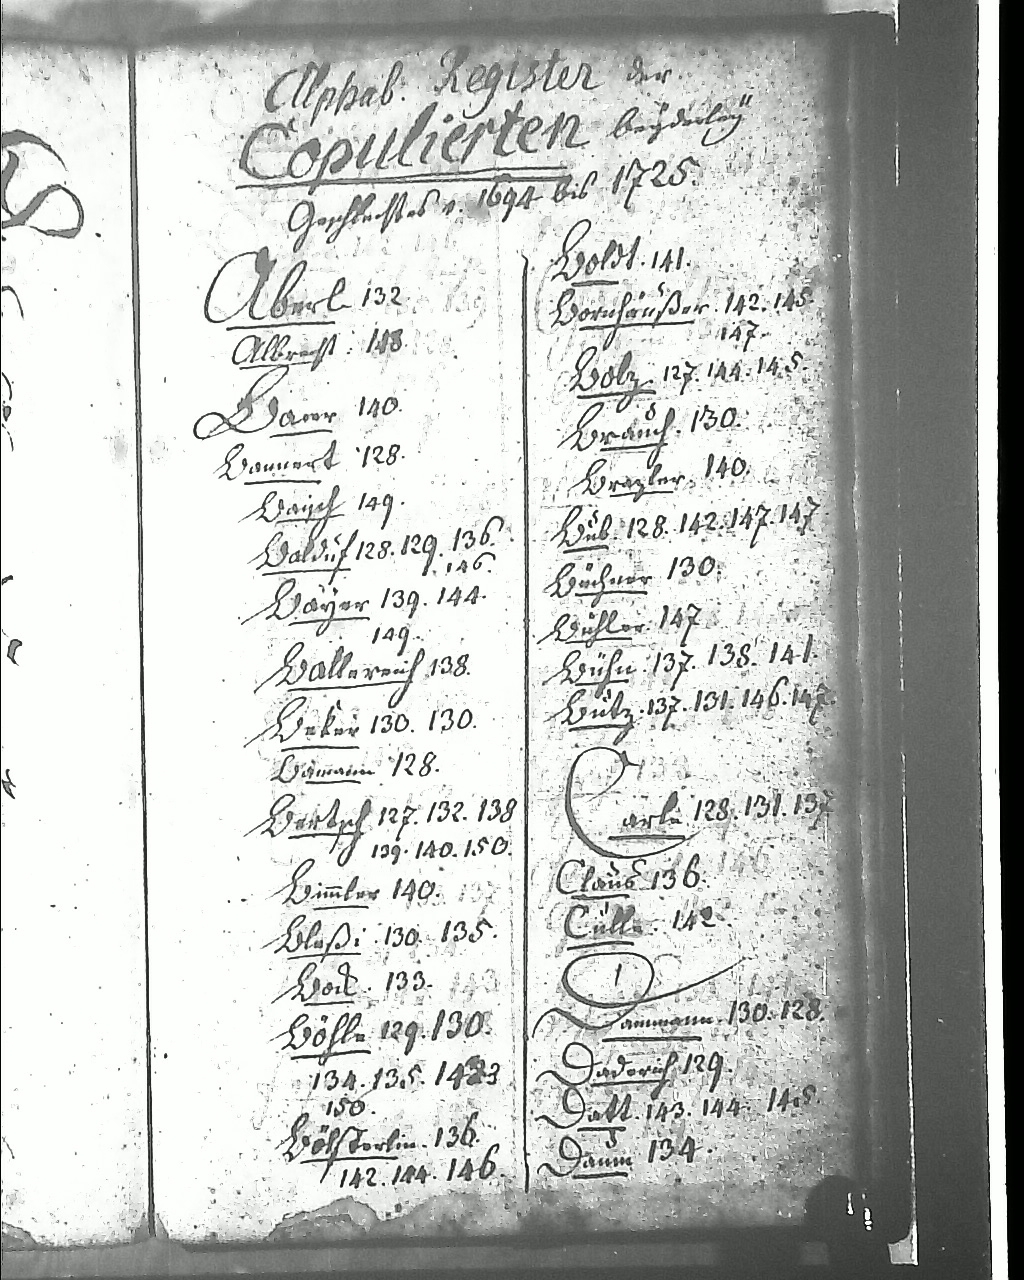 Alphab. Register der
Copulierten beyderley
Geschlechtes v. 1694 bis 1725.
Aberl 132
Albrecht. 148
Baeer 140.
Bannert 128.
Basch 149.
Balduf 128. 129. 136.
146.
Bayer 139. 144.
149.
Ballereich 138.
Beker 130. 130.
Bamann 128.
Bertsch 127. 132. 138
139. 140. 150.
Bimler 140.
Bleßi 130. 135.
Bock. 133.
Böhle 129. 130.
134. 135.
150.
Bölsterlin. 136.
142. 144. 146
Boldt. 141.
Bornhäußer. 142. 145.
147.
Bolz 127. 144. 145.
Brauch. 130.
Brezler 140.
Bub. 128. 142. 147. 147
Büchner 130.
Bühler. 147
Bühn 137. 138. 141.
Butz. 137. 131. 146. 147.
Carle 128. 131. 137
Claus 136.
Culle. 142.
Dammann. 130. 128.
Daderich 129.
Datt. 143. 144. 145.
Daum 134.